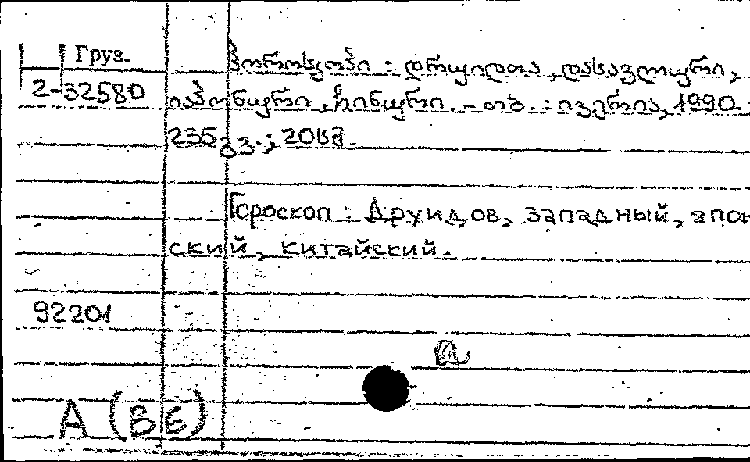 Груз.
2-32580
ჰოროსკოპი : დრუიდთა, დასავლური,
იაპონური, ჩინური. - თბ. : ივერია, 1990
235 გვ. ; 20სმ.
Гороскоп : Друидов, западный, япон
ский, китайский.
92201
А (В Б)